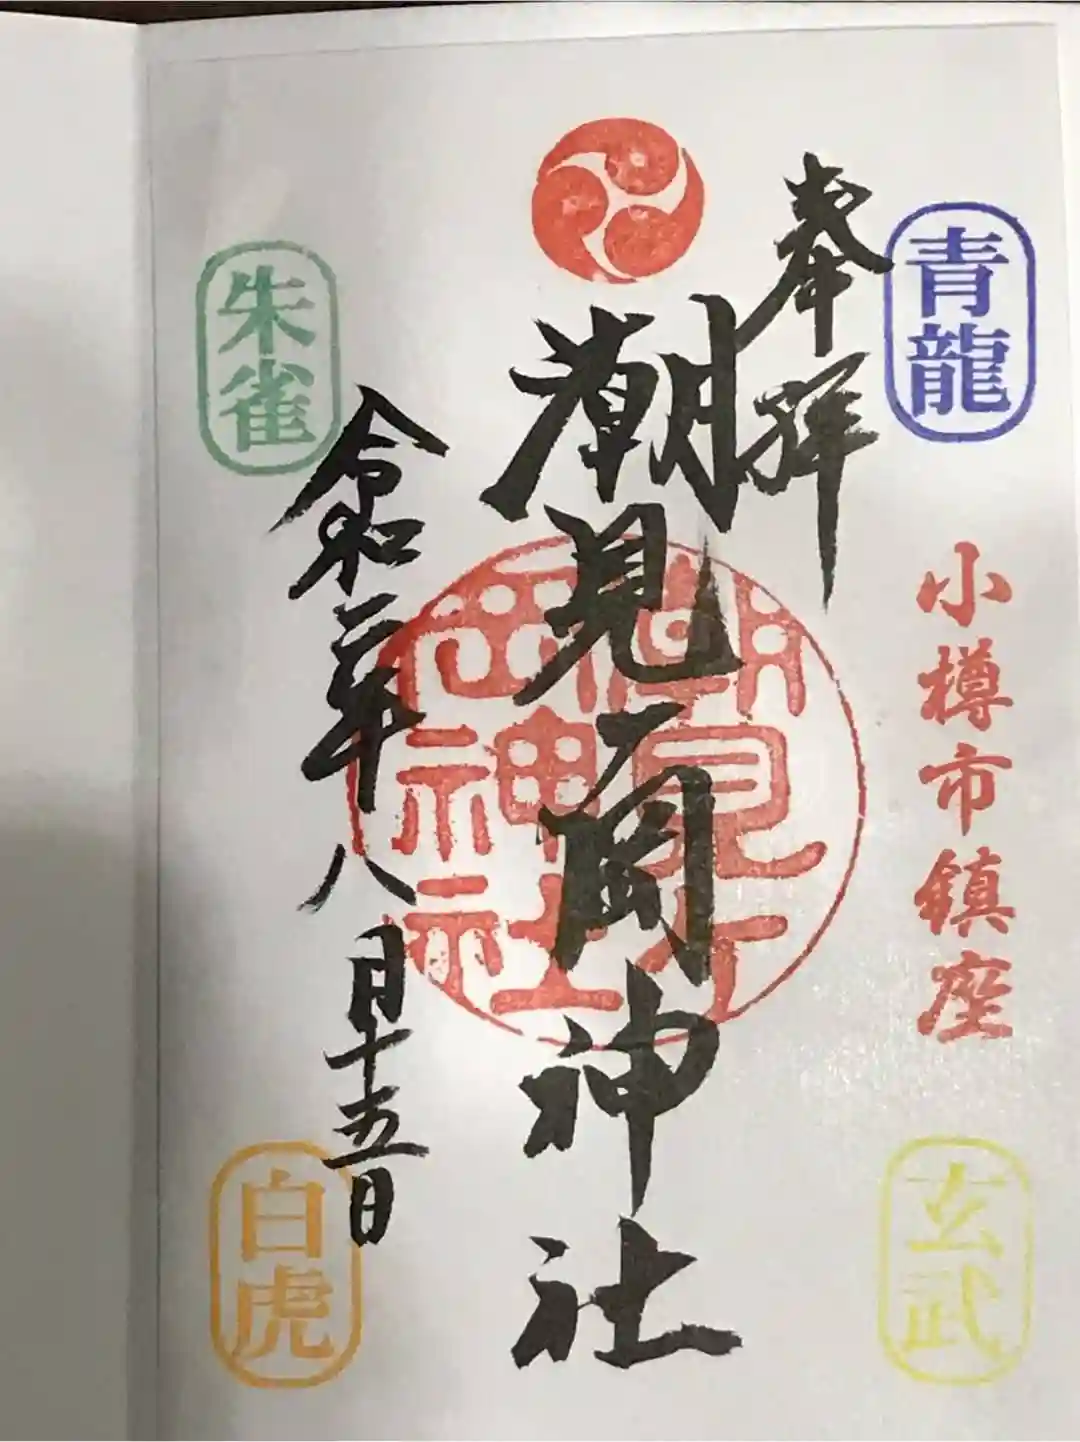 青龍
奉拝
小樽市鎮座
潮見ヶ岡神社
潮見ヶ
岡神社
朱雀
令和二年八月十五日
玄武
白虎